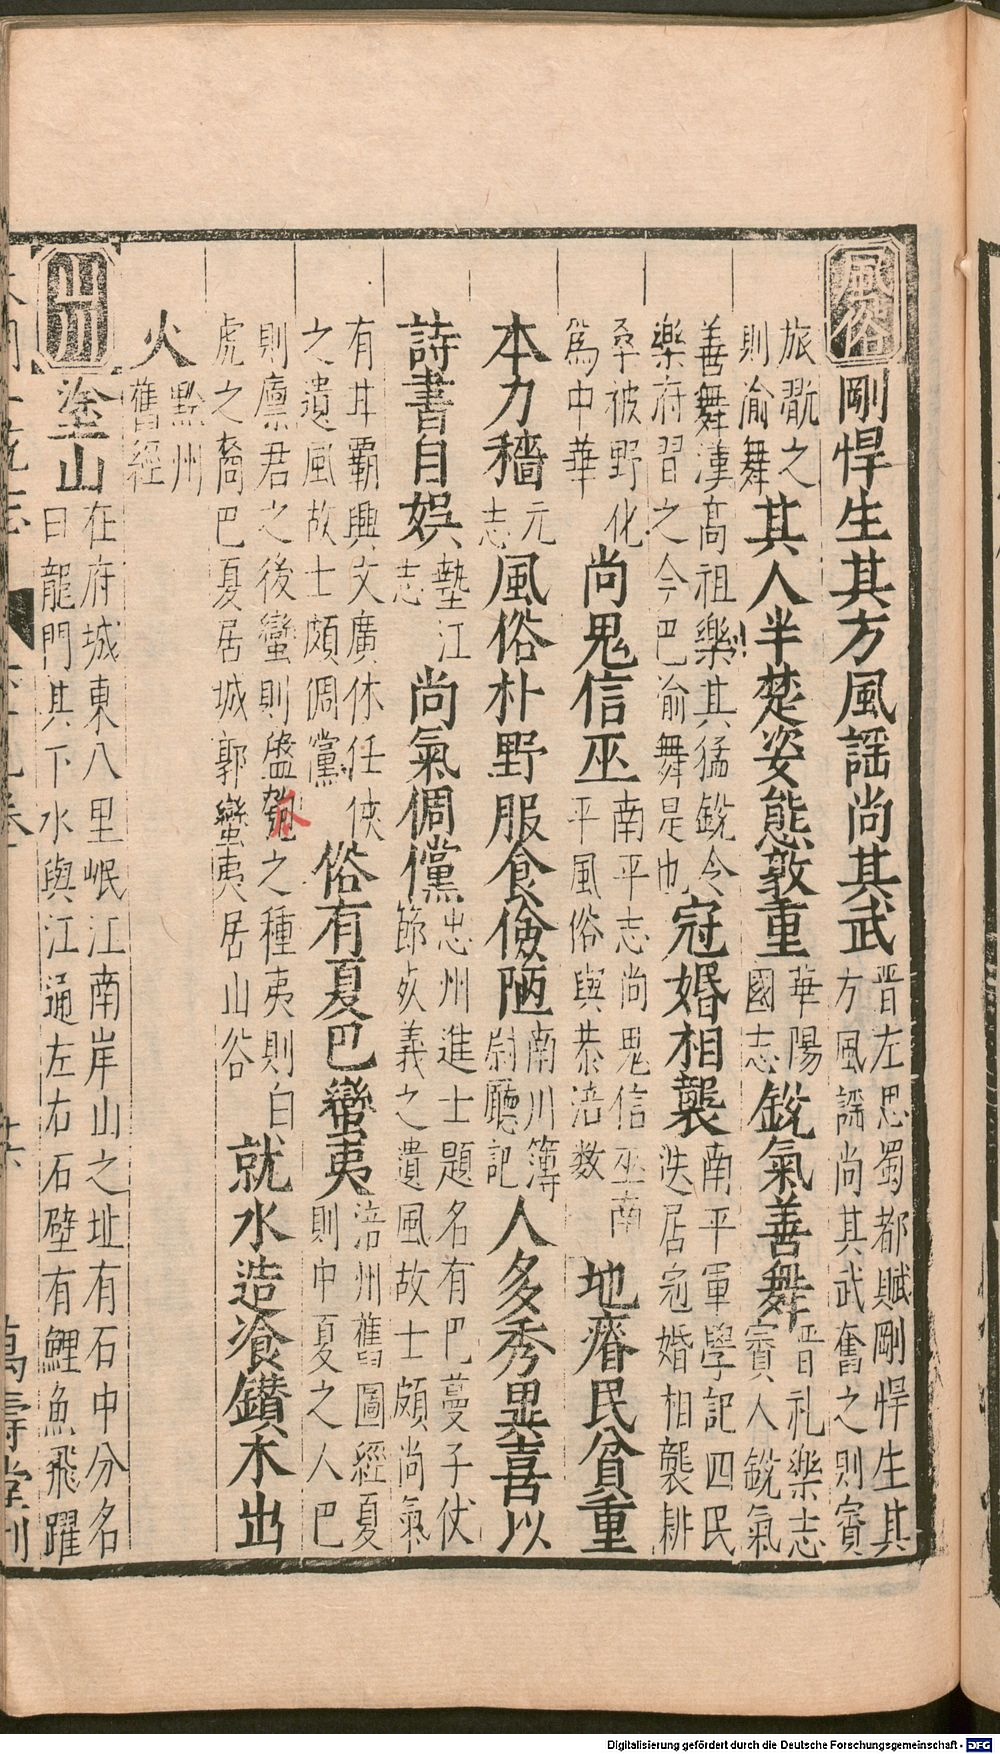 風俗剛悍生其方風謡尚其武晋左思蜀都賦剛悍生其方風謡尚其武奮之則賨
旅翫之則渝舞其人半楚姿態敦重華陽國志銳氣善舞晋礼樂志賨人銳氣
善舞漢高祖樂其猛銳令樂府習之今巴渝舞是也冠婚相襲南平軍學記四民迭居冠婚相襲耕
桑被野化為中華尚鬼信巫南平志尚鬼信巫南平風俗與恭涪数地瘠民貧重
本力穡元志風俗朴野服食儉陋南川簿尉廳記人多秀異喜以
詩書自娯墊江志尚氣倜儻忠州進士題名有巴蔓子伏節死義之遺風故士頗尚氣
有甘霸興文廣休任俠之遺風故士頗倜黨俗有夏巴蠻夷涪州舊圖經夏則中夏之人巴
則廩君之後蠻則盤瓠之種夷則白虎之裔巴夏居城郭蠻夷居山谷就水造飡鑚木出
火黔州舊經
山川塗山在府城東八里岷江南岸山之址有石中分名曰龍門其下水與江通左右石壁有鯉魚飛躍
萬壽堂刊
Digitalisierung gefördert durch die Deutsche Forschungsgemeinschaft - DFG